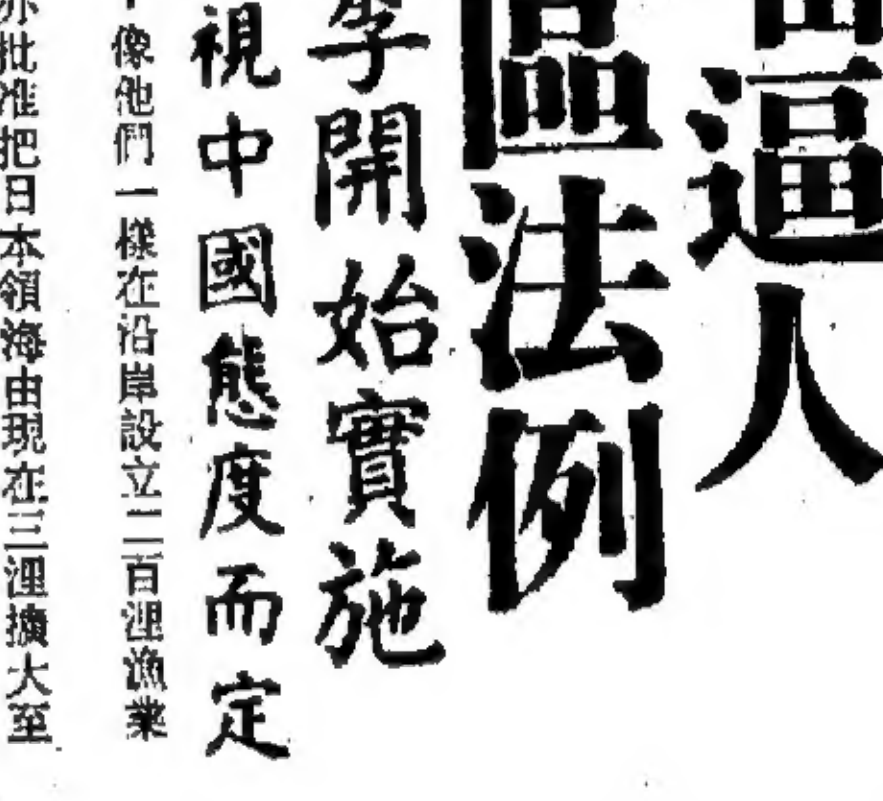 逼人
區法例
季開始實施
視中國態度而定
像他們一樣在沿岸設立二百浬漁業
亦批准把日本領海由現在三浬擴大至